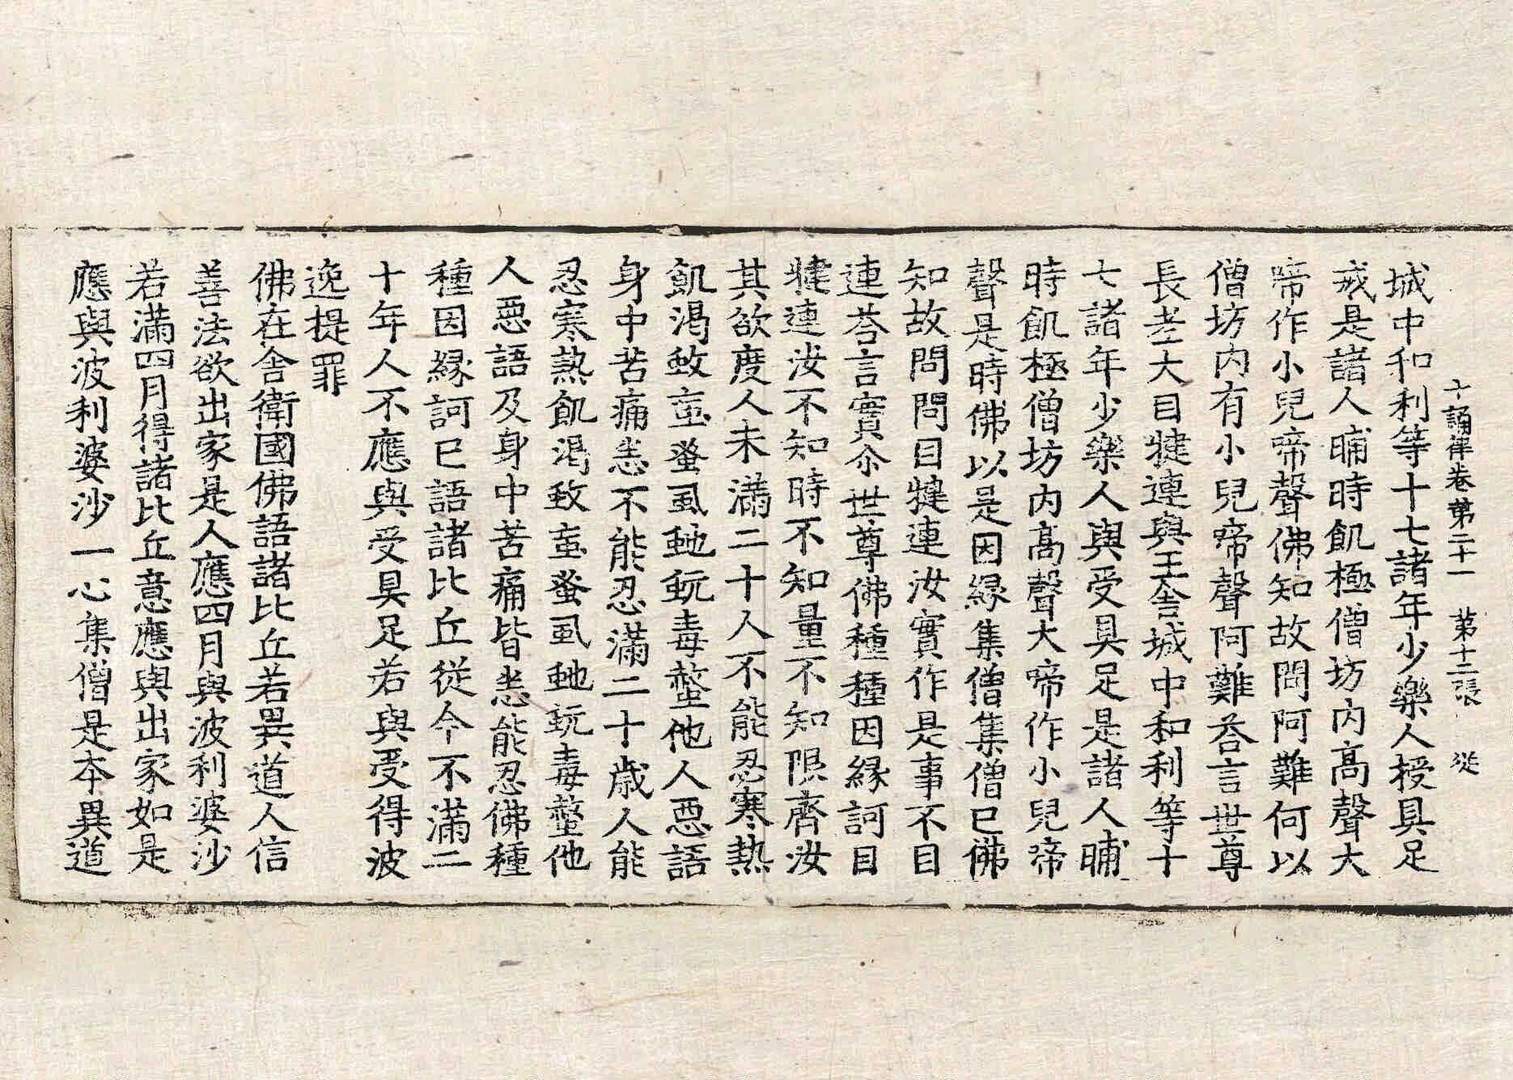 十誦律卷第二十一 第十二張 從
城中和利等十七諸年少樂人授具足
戒是諸人晡時飢極僧坊內高聲大
啼作小兒啼聲佛知故問阿難何以
僧坊內有小兒啼聲阿難荅言世尊
長老大目犍連與王舍城中和利等十
七諸年少樂人與受具足是諸人晡
時飢極僧坊內高聲大啼作小兒啼
聲是時佛以是因緣集僧集僧已佛
知故問問目犍連汝實作是事不目
連荅言實尒世尊佛種種因緣訶目
犍連汝不知時不知量不知限齊汝
其欲度人未滿二十人不能忍寒熱
飢渴蚊䖟蚤虱虵蚖毒螫他人惡語
身中苦痛恚不能忍滿二十歲人能
忍寒熱飢渴蚊䖟蚤虱虵蚖毒螫他
人惡語及身中苦痛皆恚能忍佛種
種因緣訶已語諸比丘從今不滿二
十年人不應與受具足若與受得波
逸提罪
佛在舍衛國佛語諸比丘若異道人信
善法欲出家是人應四月與波利婆沙
若滿四月得諸比丘意應與出家如是
應與波利婆沙一心集僧是本異道